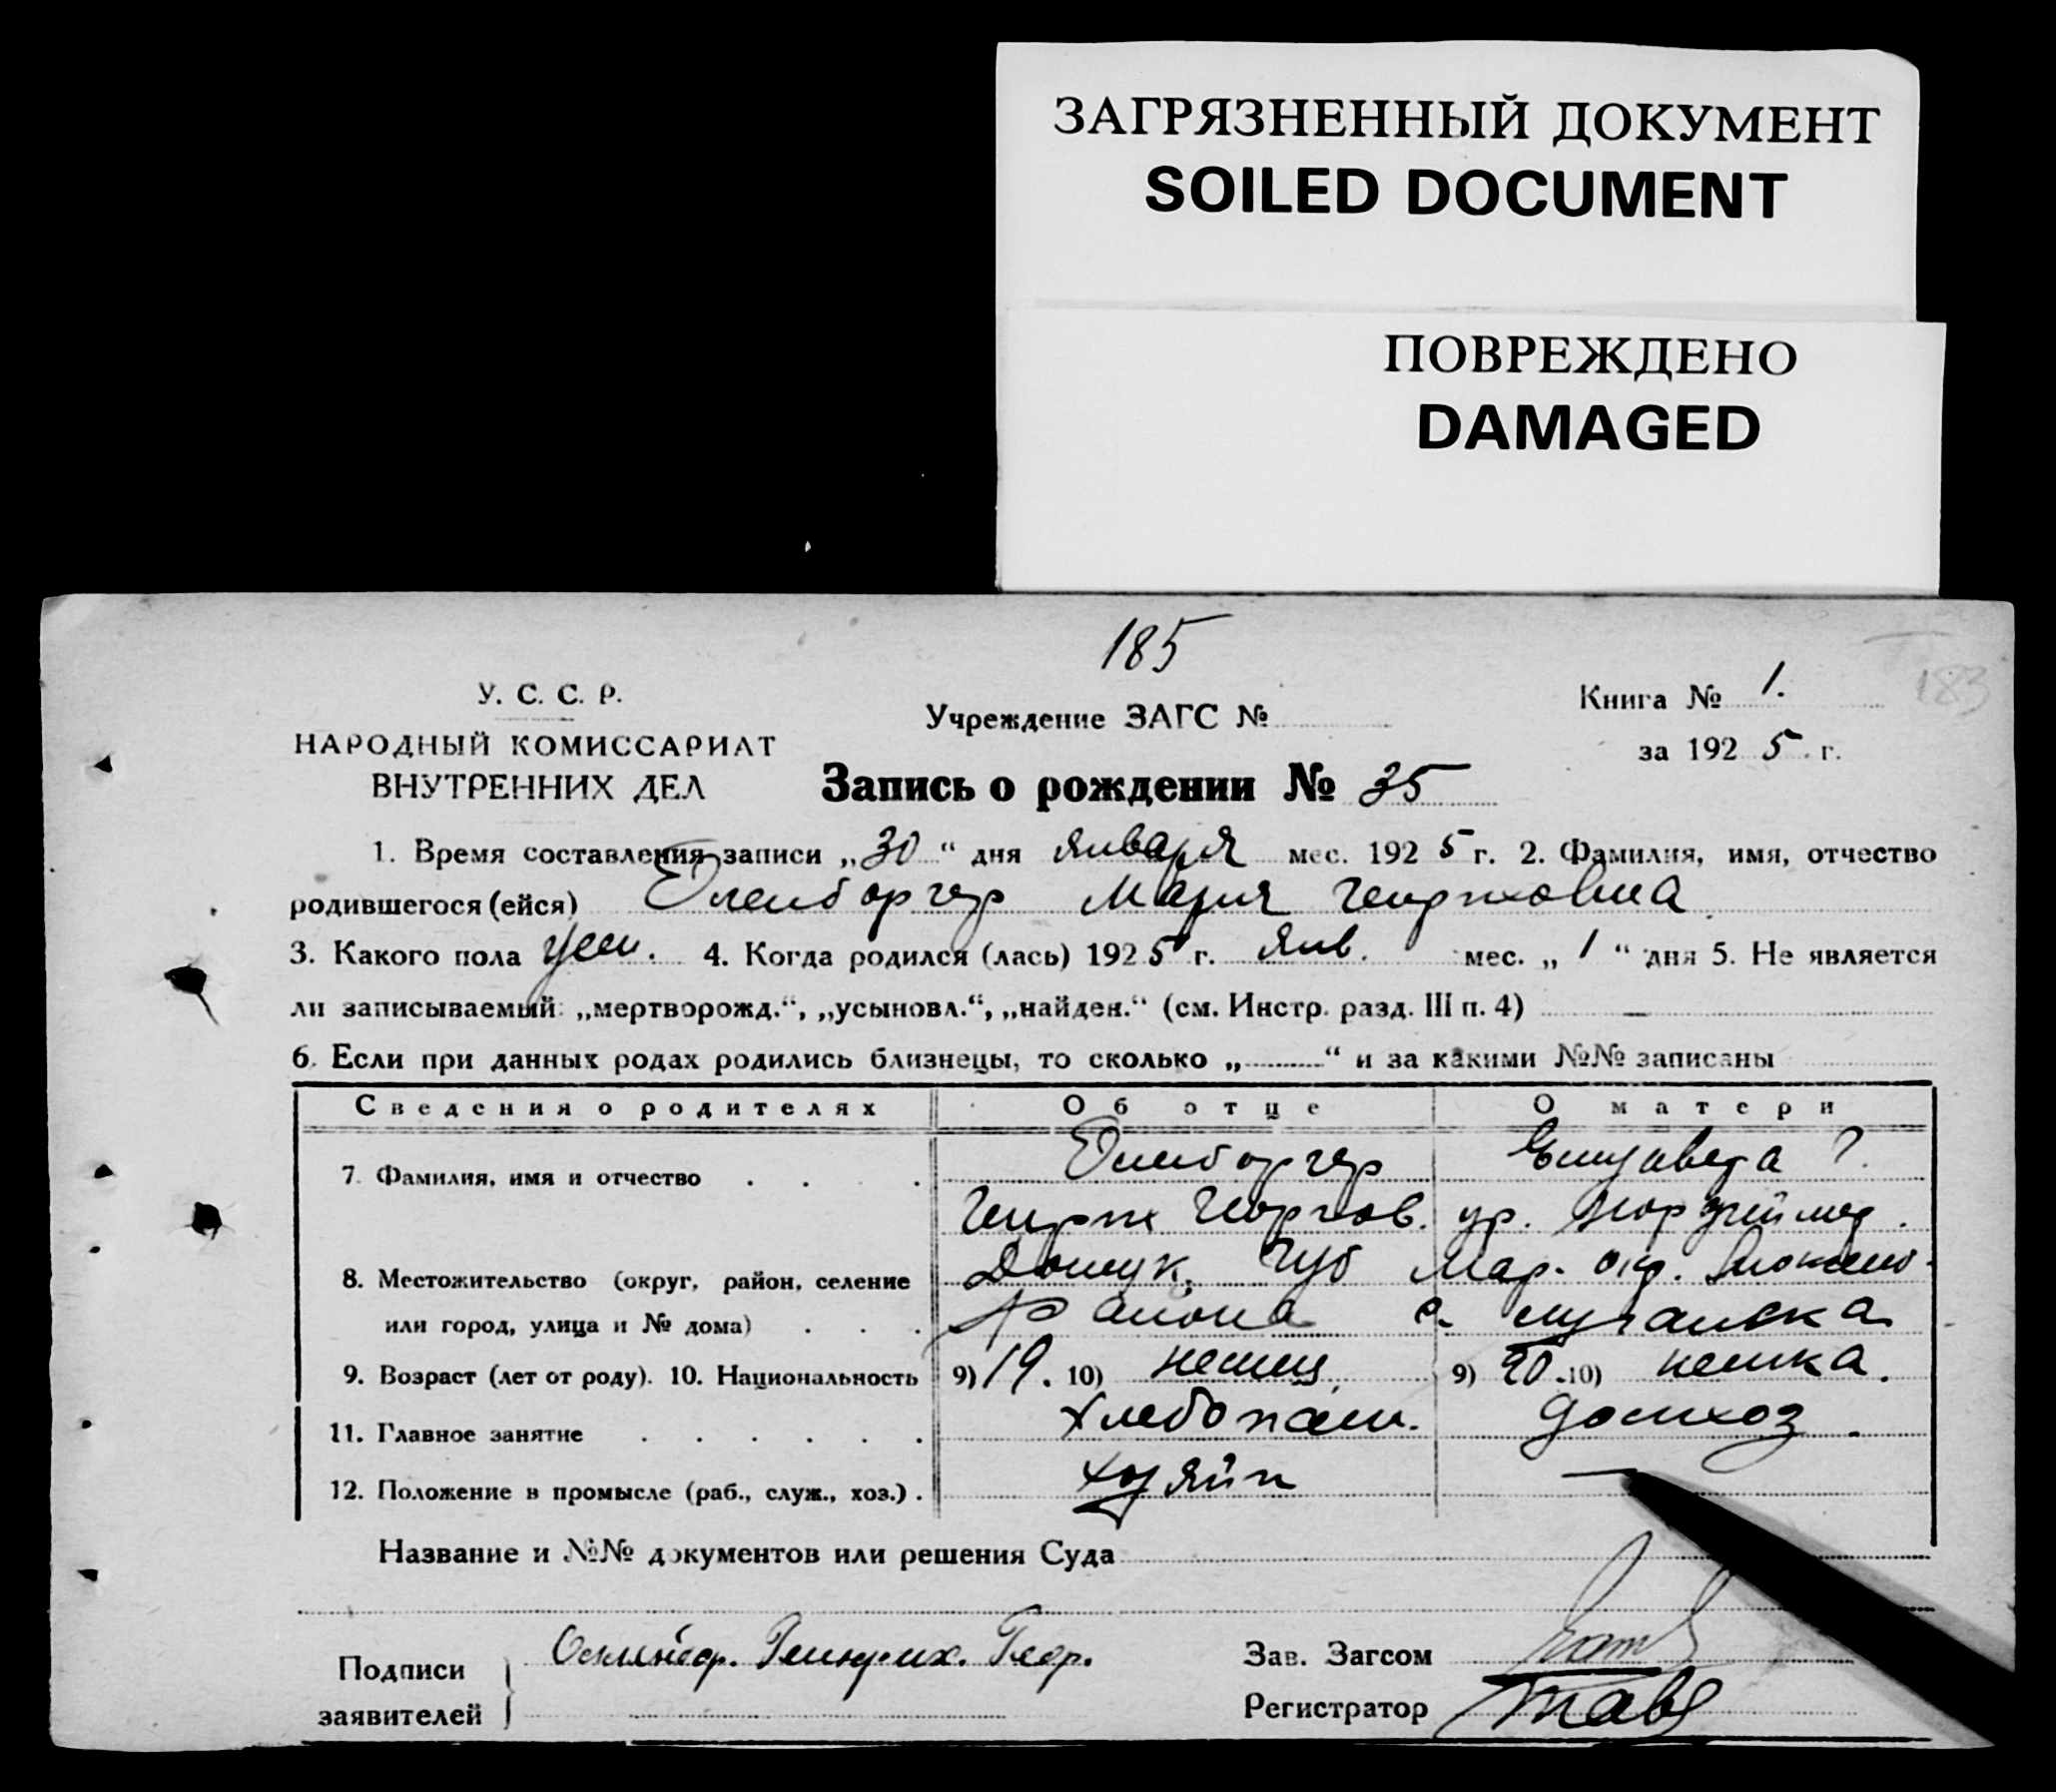 ЗАГРЯЗНЕННЫЙ ДОКУМЕНТ
SOILED DOCUMENT
ПОВРЕЖДЕНО
DAMAGED
185
183
У. С. С. Р.
НАРОДНЫЙ КОМИССАРИАТ
ВНУТРЕННИХ ДЕЛ
Учреждение ЗАГС №
Книга № 1.
за 1925 г.
Запись о рождении № 35
1. Время составления записи „30“ дня января мес. 1925 г. 2. Фамилия, имя, отчество
родившегося (ейся) Мария
3. Какого пола жен. 4. Когда родился (лась) 1925 г. янв. мес. „1“ дня 5. Не является
ли записываемый: „мертворожд.“, „усыновл.“, „найден.“ (см. Инстр. разд. III п. 4) —
6. Если при данных родах родились близнецы, то сколько „ “ и за какими №№ записаны
Сведения о родителях Об отце О матери
7. Фамилия, имя и отчество Елизавета ?
ур.
8. Местожительство (округ, район, селение Мар. окр.
или город, улица и № дома) района с.
9. Возраст (лет от роду). 10. Национальность 9) 19. 10) немец. 9) 20. 10) немка.
11. Главное занятие хлебопаш. домхоз.
12. Положение в промысле (раб., служ., хоз.) . хозяин —
Название и №№ документов или решения Суда
Подписи
заявителей Генрих. Геор.
Зав. Загсом
Регистратор